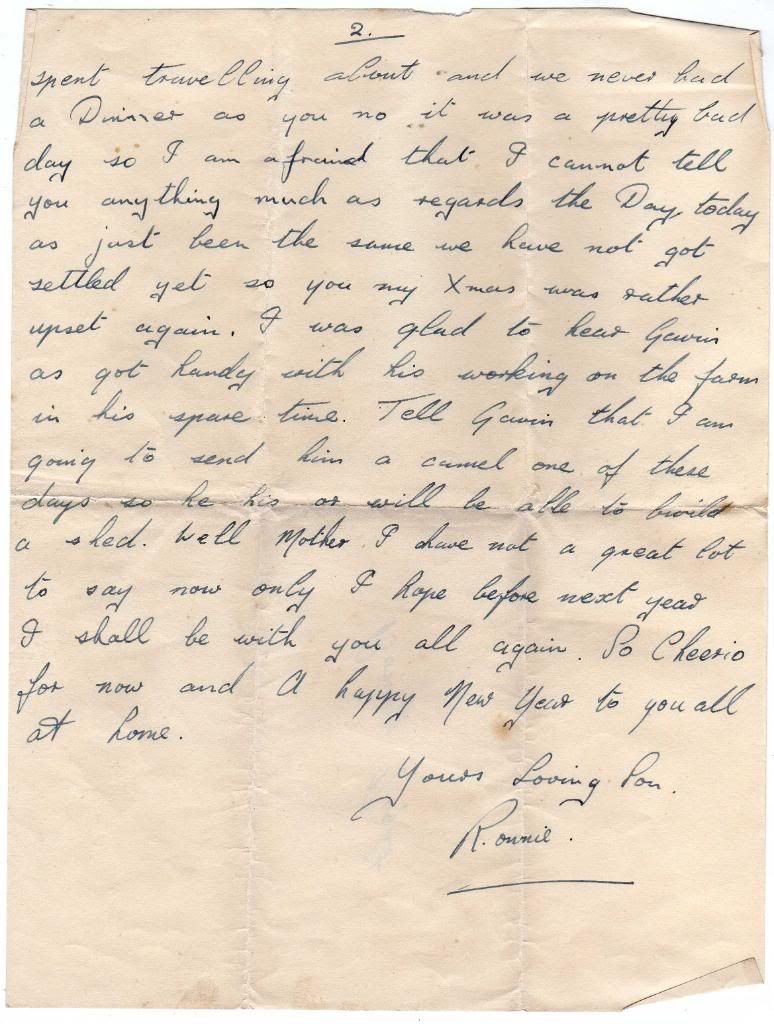 2.
spent travelling about and we never had
a Dinner as you no it was a pretty bad
day so I am afraind that I cannot tell
you anything much as regards the Day, today
as just been the same we have not got
settled yet so you my Xmas was rather
upset again. I was glad to hear Gavin
as got handy with his working on the farm
in his spare time. Tell Gavin that I am
going to send him a camel one of these
days so he his or will be able to build
a shed. Well Mother I have not a great lot
to say now only I hope before next year
I shall be with you all again. So Cheerio
for now and A happy New Year to you all
at home.
Yours Loving Son.
Ronnie.